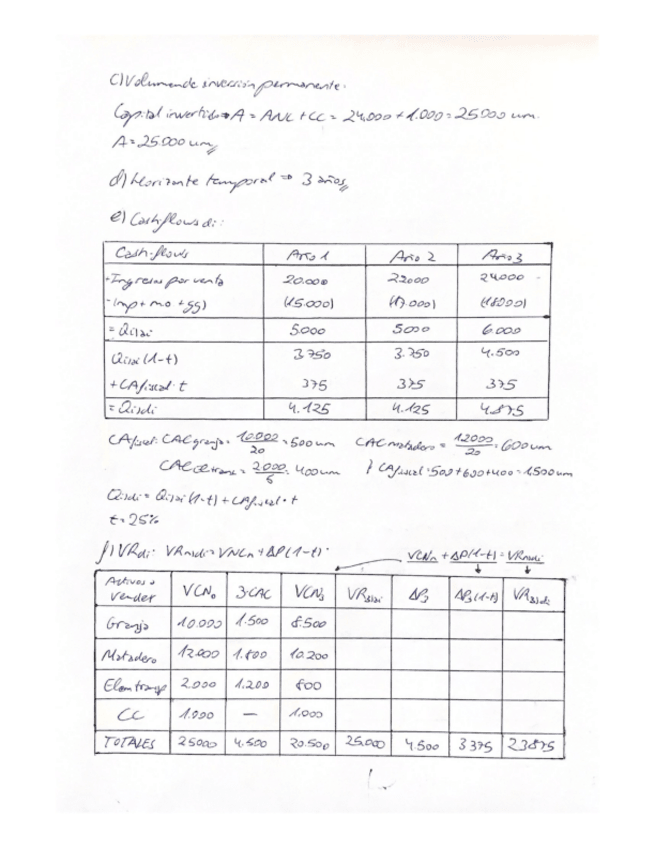 c) Volumen de inversión permanente:
Capital invertido → A = ANC + CC = 24.000 + 1.000 = 25.000 um.
A = 25.000 um
d) Horizonte temporal ⇒ 3 años
e) Cash-flows di:
Cash-flows Año 1 Año 2 Año 3
+ Ingresos por venta 20.000 22.000 24.000
- (mp + mo + gg) (15.000) (17.000) (18000)
= Qisai 5.000 5.000 6.000
Qisai (1-t) 3.750 3.750 4.500
+ CAfiscal · t 375 375 375
= Qisdi 4.125 4.125 4.875
CAfiscal: CAC granja = 10.000/20 = 500 um CAC matadero = 12000/20 = 600 um
CAC el. transp = 2.000/5 = 400 um } CAfiscal = 500 + 600 + 400 = 1500 um
Qisdi = Qisai (1-t) + CAfiscal · t
t = 25%
f) VRdi: VRndi = VNCn + ΔP (1-t)
VCNn + ΔP(1-t) = VRndi
Activos a vender VCN₀ 3·CAC VCN₃ VR₃sai ΔP₃ ΔP₃(1-t) VR₃sdi
Granja 10.000 1.500 8.500
Matadero 12.000 1.800 10.200
Elem transp 2.000 1.200 800
CC 1.000 — 1.000
TOTALES 25000 4.500 20.500 25.000 4.500 3375 23875